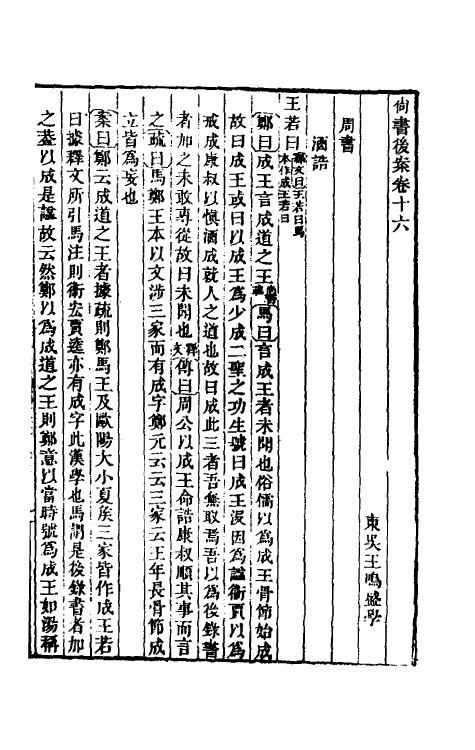 尙書後案卷十六
東吳王鳴盛學
周書
酒誥
王若曰釋文曰王若曰馬本作成王若曰
鄭曰成王言成道之王書疏馬曰言成王者未聞也俗儒以爲成王骨節始成
故曰成王或曰以成王爲少成二聖之功生號曰成王沒因爲諡衞賈以爲
戒成康叔以愼酒成就人之道也故曰成此三者吾無取焉吾以爲後錄書
者加之未敢專從故曰未聞也釋文傳曰周公以成王命誥康叔順其事而言
之疏曰馬鄭王本以文涉三家而有成字鄭元云云三家云王年長骨節成
立皆爲妄也
案曰鄭云成道之王者據疏則鄭馬王及歐陽大小夏矦三家皆作成王若
曰據釋文所引馬注則衞宏賈逵亦有成字此漢學也馬謂是後錄書者加
之葢以成是諡故云然鄭以爲成道之王則鄭意以當時號爲成王如湯稱